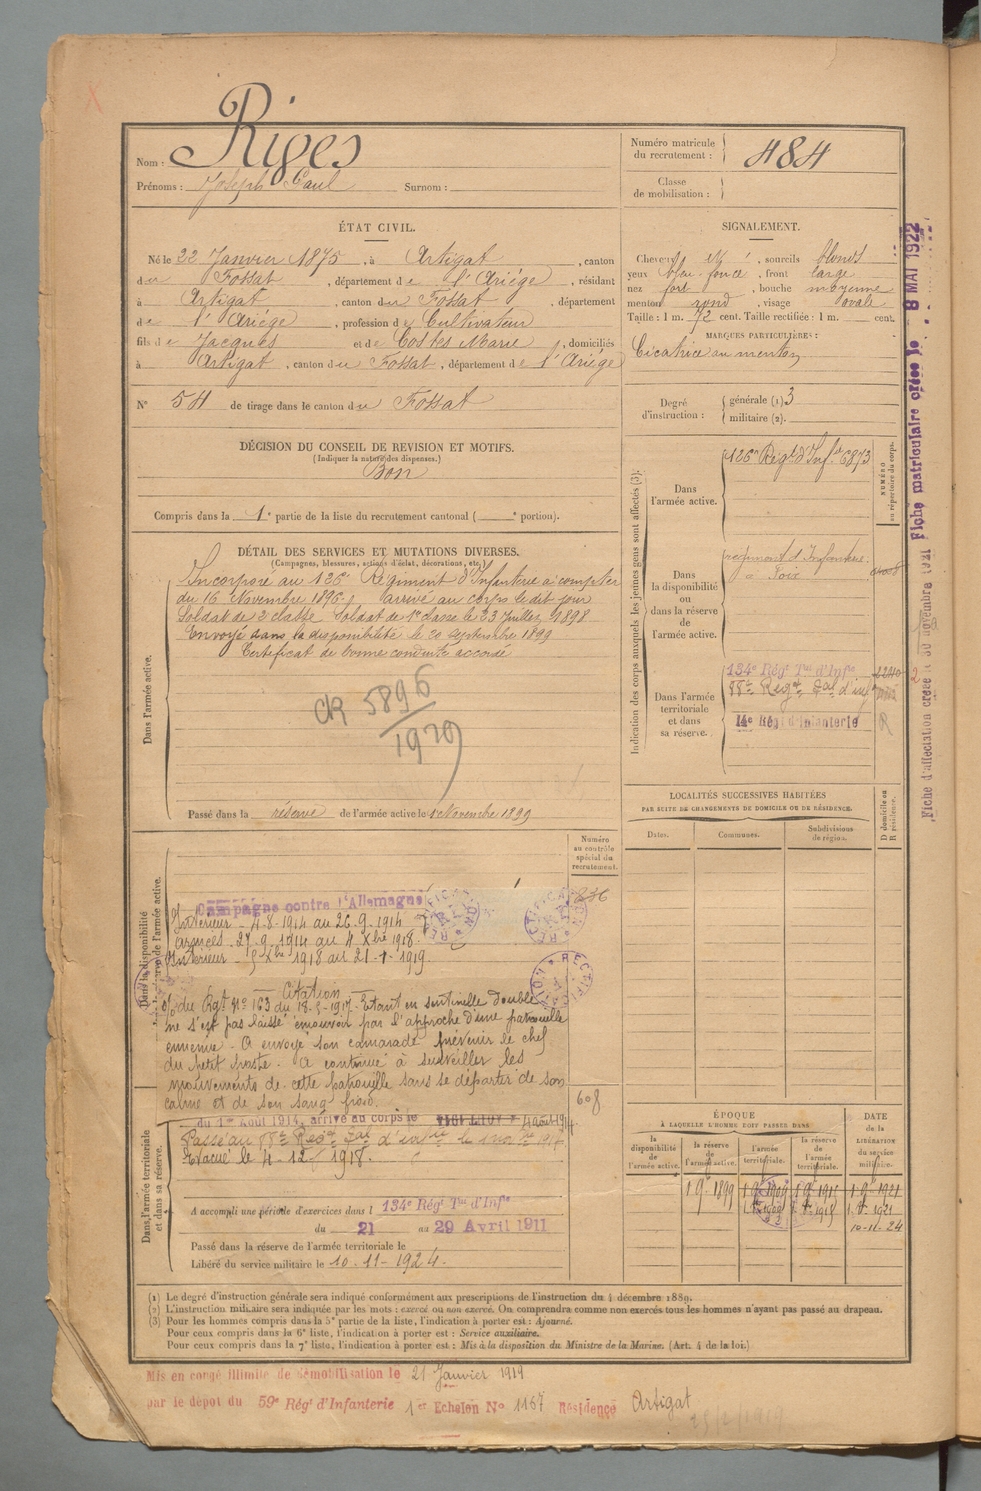 Nom : Rives
Prénoms : Joseph Paul Surnom :
Numéro matricule du recrutement : 484
Classe de mobilisation :
ÉTAT CIVIL.
Né le 22 Janvier 1875, à Artigat, canton
du Fossat, département de l'Ariége, résidant
à Artigat, canton du Fossat, département
de l'Ariége, profession de Cultivateur
fils de Jacques et de Costes Marie, domiciliés
à Artigat, canton du Fossat, département de l'Ariége
N° 54 de tirage dans le canton du Fossat
SIGNALEMENT.
Cheveux, sourcils blonds
yeux bleu foncé, front large
nez fort, bouche moyenne
menton rond, visage ovale
Taille : 1 m. 72 cent. Taille rectifiée : 1 m. cent.
MARQUES PARTICULIÈRES :
Cicatrice au menton
Degré d'instruction : générale (1) 3
militaire (2).
DÉCISION DU CONSEIL DE REVISION ET MOTIFS.
(Indiquer la nature des dispenses.)
Bon
Compris dans la 1e partie de la liste du recrutement cantonal ( e portion).
DÉTAIL DES SERVICES ET MUTATIONS DIVERSES.
(Campagnes, blessures, actions d'éclat, décorations, etc.)
Dans l'armée active.
Incorporé au 126e Régiment d'Infanterie à compter
du 16 Novembre 1896. arrivé au corps le dit jour
Soldat de 2e classe Soldat de 1re classe le 23 Juillet 1898
Envoyé dans la disponibilité le 20 Septembre 1899
Certificat de bonne conduite accordé
CR 5896
1929
Passé dans la réserve de l'armée active le 1 Novembre 1899
Indication des corps auxquels les jeunes gens sont affectés (3).
NUMÉRO au répertoire du corps.
Dans l'armée active.
126e Régt d'Infie 6873
Dans la disponibilité ou dans la réserve de l'armée active.
régiment d'Infanterie
à Foix
Dans l'armée territoriale et dans sa réserve.
134e Régt Tal d'Infie
88e Regt Tal d'inf
14e Régt d'Infanterie R
LOCALITÉS SUCCESSIVES HABITÉES
PAR SUITE DE CHANGEMENTS DE DOMICILE OU DE RÉSIDENCE.
Dates. Communes. Subdivisions de région. D domicile ou R résidence.
Numéro au contrôle spécial du recrutement.
836
608
Dans la disponibilité ou dans la réserve de l'armée active.
Campagne contre l'Allemagne
Intérieur - 4-8-1914 au 26-9-1914
armées - 27-9-1914 au 4 Xbre 1918
Intérieur - 5 Xbre 1918 au 21-1-1919
RECTIFICATION
Citation
o/ du Rgt N° 163 du 18-5-1917 - Etant en sentinelle double
ne s'est pas laissé émouvoir par l'approche d'une patrouille
ennemie. A envoyé son camarade prévenir le chef
du petit poste. A continué à surveiller les
mouvements de cette patrouille sans se départir de son
calme et de son sang froid.
du 1er Août 1914, arrivé au corps le 4 août 1914
Dans l'armée territoriale et dans sa réserve.
Passé au 88e Regt Tal d'infie le
Evacué le 4-12-1918.
A accompli une période d'exercices dans l 134e Régt Tal d'Infie
du 21 au 29 Avril 1911
Passé dans la réserve de l'armée territoriale le
Libéré du service militaire le 10-11-1924.
ÉPOQUE
À LAQUELLE L'HOMME DOIT PASSER DANS
la disponibilité de l'armée active. la réserve de l'armée active. l'armée territoriale. la réserve de l'armée territoriale.
DATE de la LIBÉRATION du service militaire.
1 9e 1899 1 9e 1909 1 9e 1915 1 9e 1921
10-11-24
(1) Le degré d'instruction générale sera indiqué conformément aux prescriptions de l'instruction du 4 décembre 1889.
(2) L'instruction militaire sera indiquée par les mots : exercé ou non exercé. On comprendra comme non exercés tous les hommes n'ayant pas passé au drapeau.
(3) Pour les hommes compris dans la 5e partie de la liste, l'indication à porter est : Ajourné.
Pour ceux compris dans la 6e liste, l'indication à porter est : Service auxiliaire.
Pour ceux compris dans la 7e liste, l'indication à porter est : Mis à la disposition du Ministre de la Marine. (Art. 4 de la loi.)
Mis en congé illimité de démobilisation le 21 Janvier 1919
par le dépôt du 59e Régt d'Infanterie 1er Echelon N° 1167 Résidence Artigat
Fiche matriculaire créée le 8 MAI 1922
Fiche d'affectation créée le 30 novembre 1921